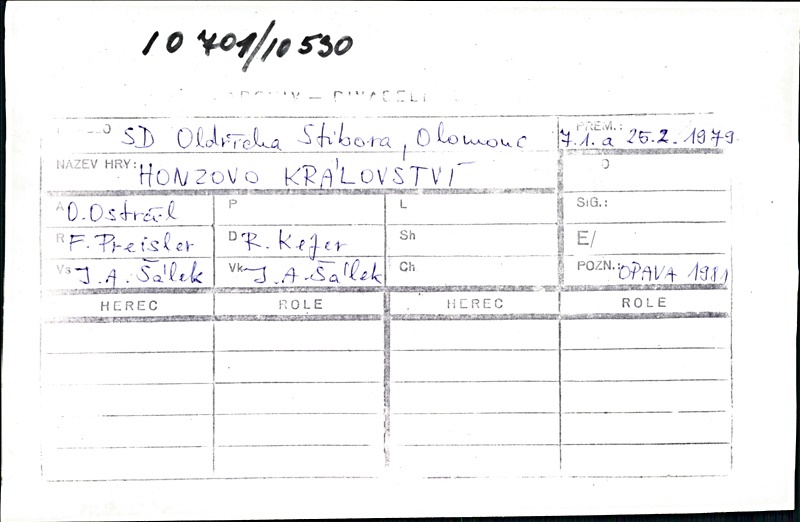 10 701/10 530
SD Oldřicha Stibora, Olomouc PREM.: 7.1. a 25.2. 1979
NÁZEV HRY: HONZOVO KRÁLOVSTVÍ
A O. Ostrčil P L SIG.:
R F. Preisler D R. Kefer Sh E/
Vs J. A. Šálek Vk J. A. Šálek Ch POZN.: OPAVA 1981
HEREC ROLE HEREC ROLE